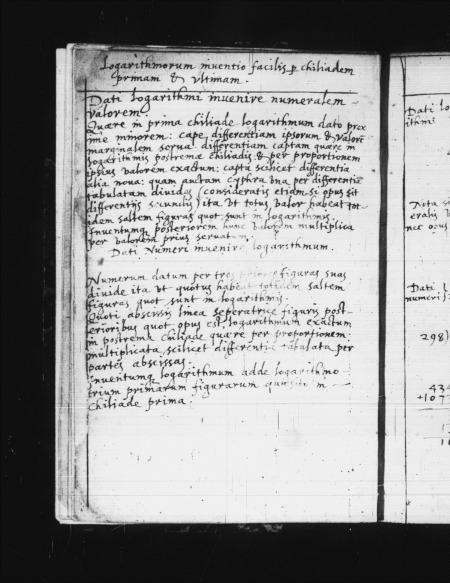 Logarithmorum inventio facilis p chiliadem
primam & ultimam.
Dati logarithmi invenire numeralem
valorem.
Quære in prima chiliade logarithmum dato prox
ime minorem: cape differentiam ipsorum & valorē
marginalem serva. differentiam captam quære in
logarithmis postremæ chiliadis & per proportionem
ipsius valorem exactum: capta scilicet differentia
alia nova: quam auctam cyphra una per differentiā
tabulatam dividas (consideratis etiam si opus sit
differentijs secundis) ita ut totus valor habeat tot-
idem saltem figuras quot sunt in logarithmis.
Inventumq posteriorem hunc valorem multiplica
per valorem prius servatum.
Dati Numeri invenire logarithmum.
Numerum datum per tres priores figuras suas
divide ita ut quotus habeat totidem saltem
figuras quot sunt in logarithmis.
Quoti abscissis linea seperatrice figuris post-
erioribus quot opus est logarithmum exactum
in postrema chiliade quære per proportionem:
multiplicata scilicet differentia tabulata per
partes abscissas.
Inventumq logarithmum adde logarithmo
trium primarum figurarum quæsito in
chiliade prima.
Dati lo
ithmi
Nota si
eralis
nec opus
Dati
numeri
298)
434
+1073